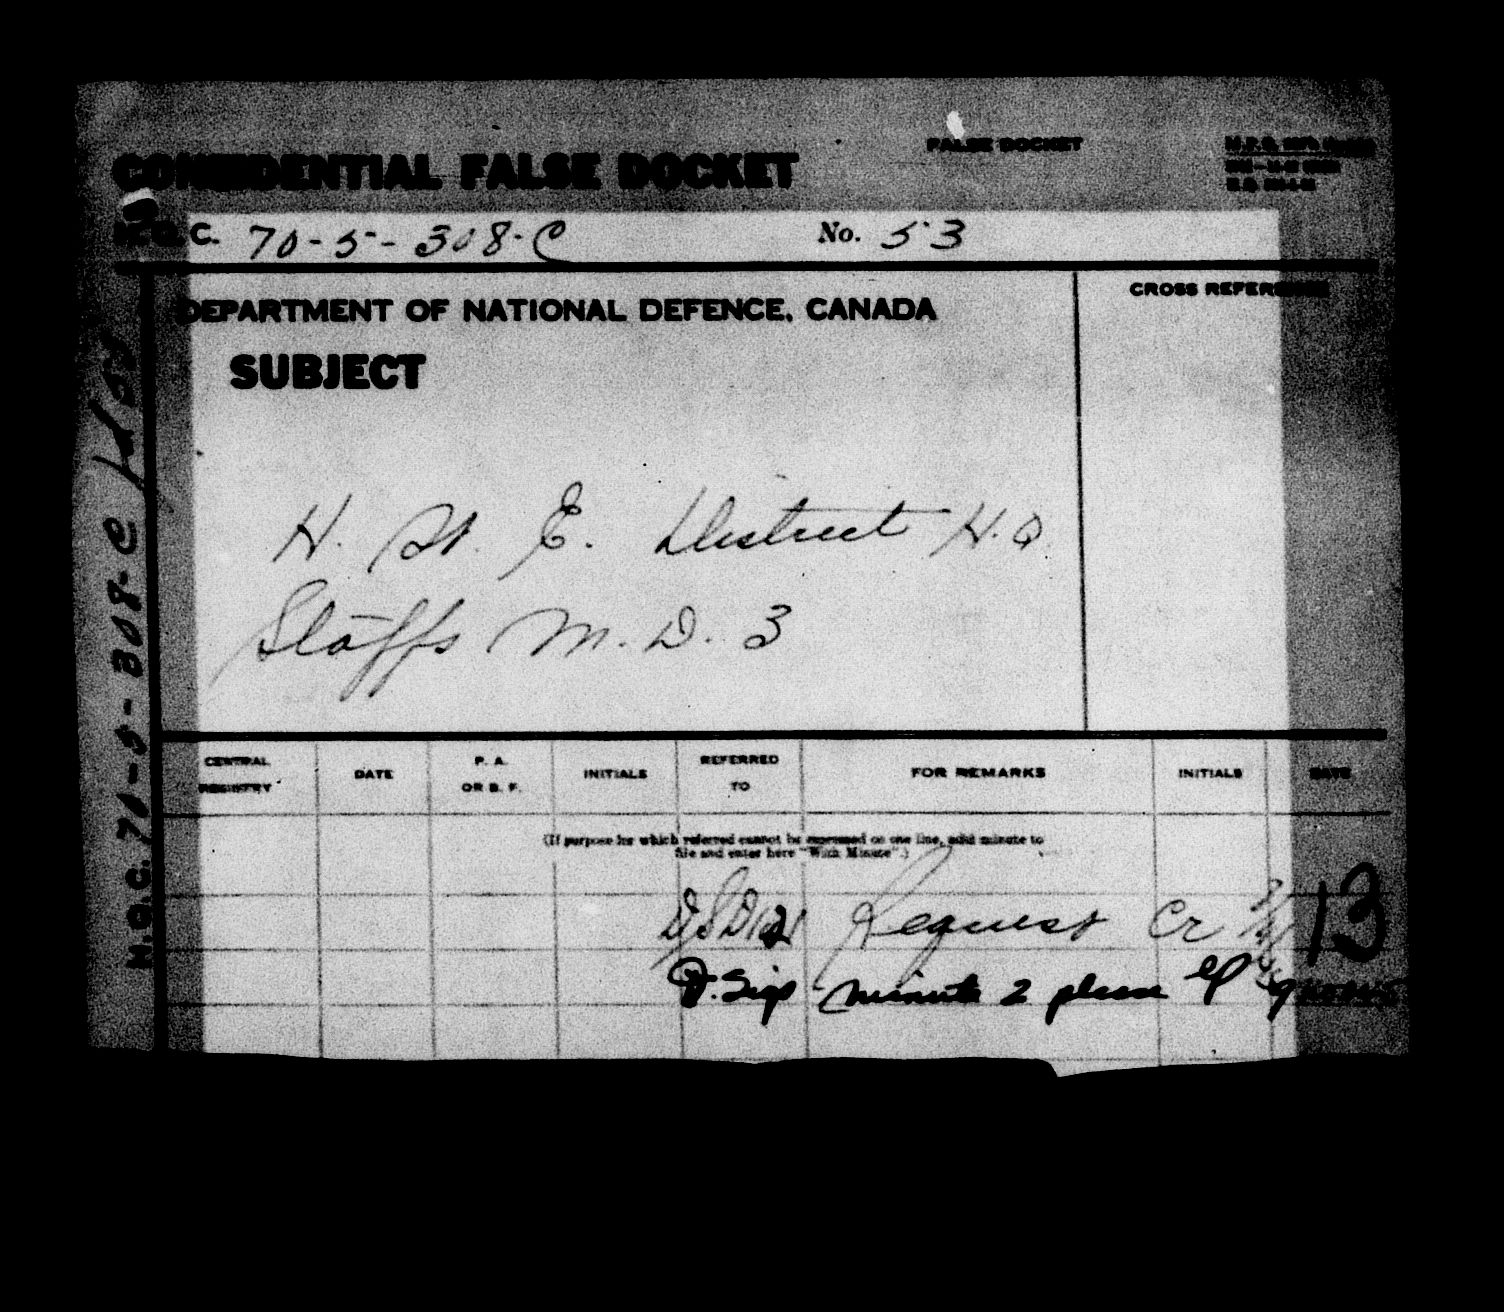 FALSE DOCKET
CONFIDENTIAL FALSE DOCKET
H.Q.C. 70-5-308-C No. 53
DEPARTMENT OF NATIONAL DEFENCE, CANADA
CROSS REFERENCE
SUBJECT
H. W. E. District H.Q.
Staffs M.D. 3
CENTRAL REGISTRY DATE P. A. OR B. F. INITIALS REFERRED TO FOR REMARKS INITIALS DATE
(If purpose for which referred cannot be expressed on one line, add minute to
file and enter here "With Minute".)
Request Cr 13
D.Sigs minute 2 please
H.Q.C. 70-5-308-C